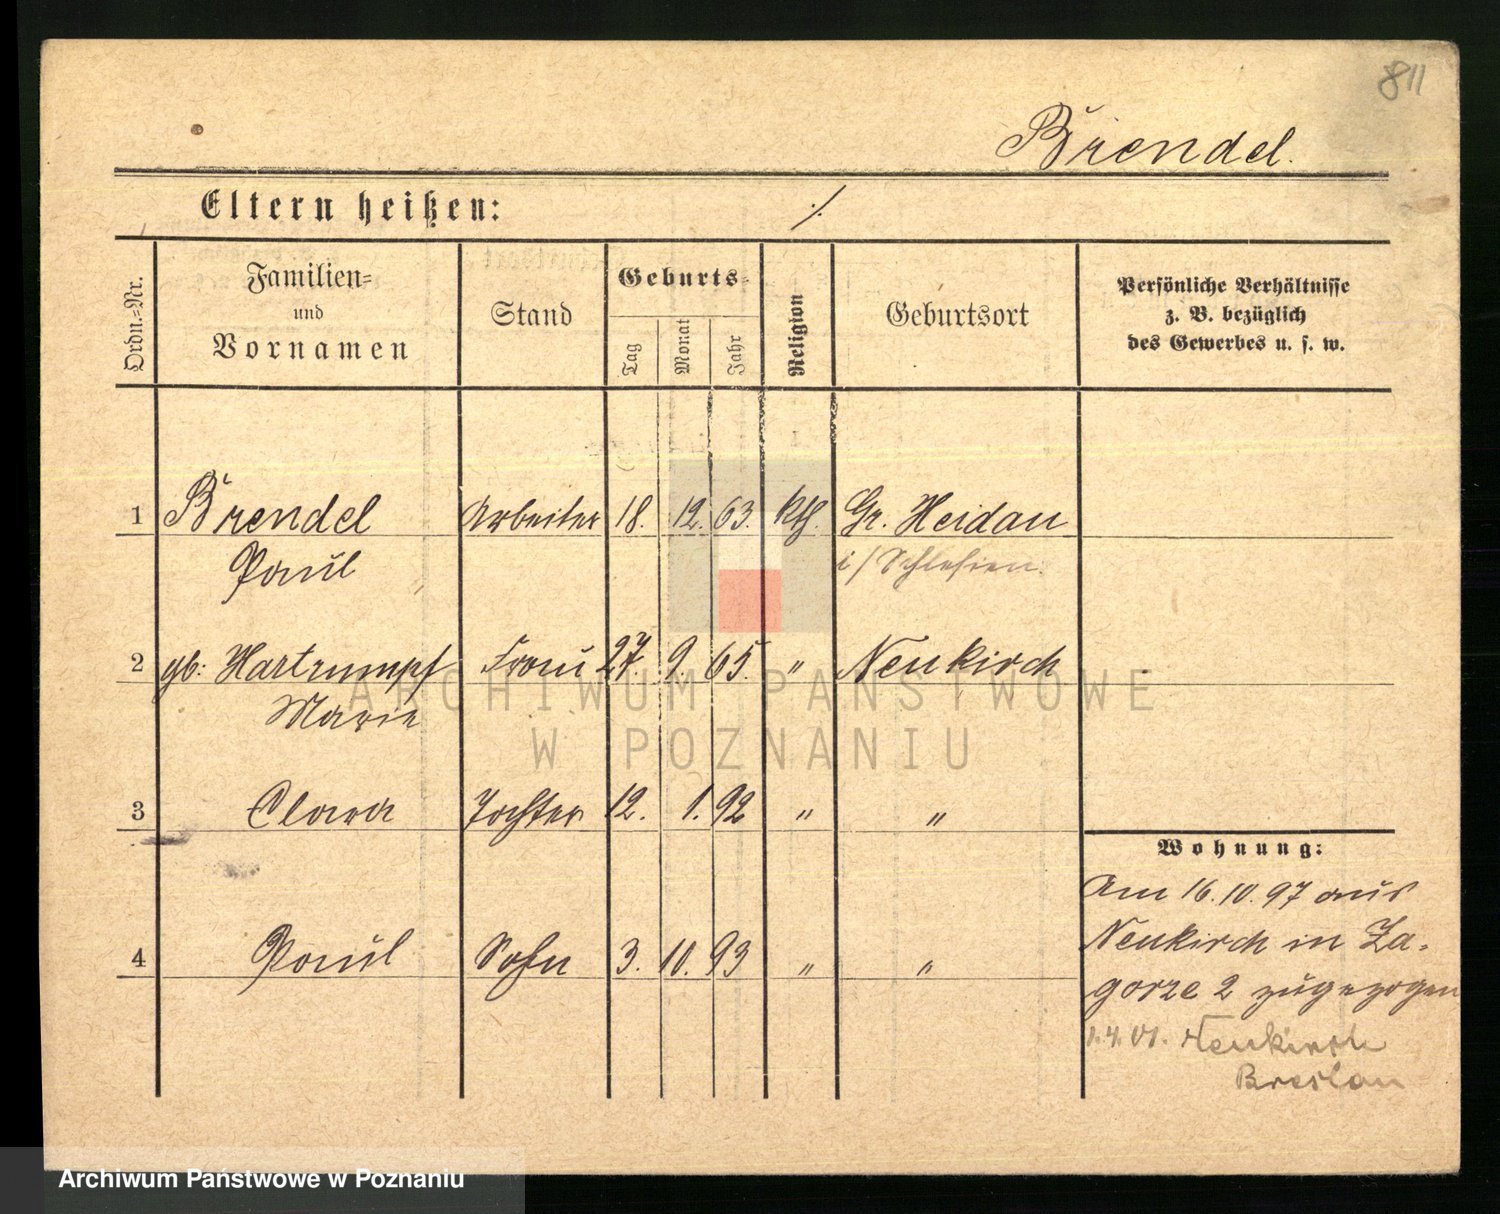 811
Brendel.
Eltern heißen: ./.
Ordn.=Nr.
Familien=
und
Vornamen
Stand
Geburts=
Tag
Monat
Jahr
Religion
Geburtsort
Persönliche Verhältnisse
z. B. bezüglich
des Gewerbes u. s. w.
1 Brendel Arbeiter 18. 12. 63. kth. Gr. Heidau
Paul i/Schlesien.
2 gb: Hartrumpf Frau 27. 9. 65. " Neukirch
Marie
ARCHIWUM PAŃSTWOWE
W POZNANIU
3 Clara Tochter 12. 1. 92 " "
4 Paul Sohn 3. 10. 93 " "
Wohnung:
Am 16.10.97 aus
Neukirch in Za-
gorze 2 zugezogen
1.4.01. Neukirch
Breslau
Archiwum Państwowe w Poznaniu